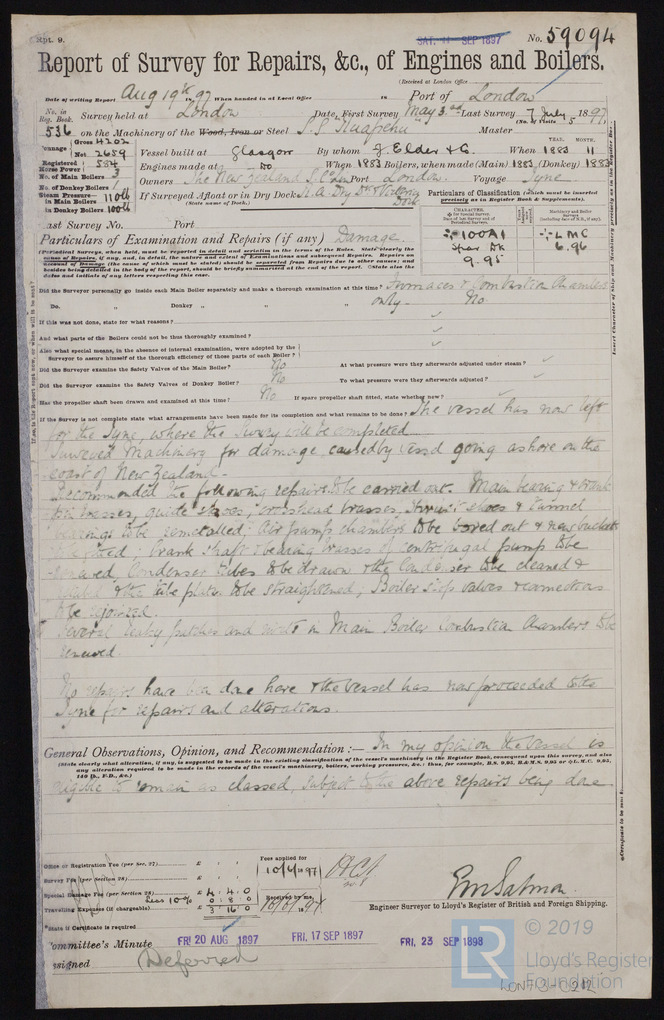 Rpt. 9.
SAT. 11 SEP 1897
No. 59094
Report of Survey for Repairs, &c., of Engines and Boilers.
(Received at London Office
Date of writing Report Aug 19th 1897 When handed in at Local Office 18 Port of London
No. in Reg. Book. 536 Survey held at London Date, First Survey May 3rd Last Survey 7 July 1897
(No. of Visits 5
on the Machinery of the Wood, Iron or Steel S.S. "Ruapehu" Master
Tonnage Gross 4202 Net 2659
Vessel built at Glasgow By whom J. Elder & Co. When 1883 11
YEAR. MONTH.
Registered Horse Power 534
Engines made at Do When 1883 Boilers, when made (Main) 1883 (Donkey) 1883
No. of Main Boilers 3
Owners The New Zealand S. Co. Ld Port London. Voyage Tyne
No. of Donkey Boilers 1
Steam Pressure in Main Boilers 110 lb
in Donkey Boilers 100 lb
If Surveyed Afloat or in Dry Dock R.A. Dry Dk & Victoria Dock
(State name of Dock.)
Particulars of Classification (which must be inserted precisely as in Register Book & Supplements).
CHARACTER.
Machinery and Boiler Surveys
100A1
Spar Dk
9.95
LMC
6.96
Last Survey No. Port
Particulars of Examination and Repairs (if any) Damage.
(Periodical Surveys, when held, must be reported in detail and seriatim in the terms of the Rules. State clearly the
Did the Surveyor personally go inside each Main Boiler separately and make a thorough examination at this time? Furnaces & Combustion Chambers only.
Do. " Donkey " " " " No
If this was not done, state for what reasons?
And what parts of the Boilers could not be thus thoroughly examined?
Also what special means, in the absence of internal examination, were adopted by the Surveyor to assure himself of the thorough efficiency of those parts of each Boiler?
Did the Surveyor examine the Safety Valves of the Main Boiler? No At what pressure were they afterwards adjusted under steam?
Did the Surveyor examine the Safety Valves of Donkey Boiler? No To what pressure were they afterwards adjusted?
Has the propeller shaft been drawn and examined at this time? No If spare propeller shaft fitted, state whether new?
If the Survey is not complete state what arrangements have been made for its completion and what remains to be done? The vessel has now left
for the Tyne, where the Survey will be completed
Surveyed Machinery for damage, caused by vessel going ashore on the
coast of New Zealand.
Recommended the following repairs to be carried out. Main bearing & crank
pin brasses, guide shoes, crosshead brasses, thrust shoes & tunnel
bearings to be remetalled; Air pump chambers to be bored out & new buckets
to be fitted; crank shaft & bearing brasses of centrifugal pump to be
renewed, Condenser tubes to be drawn & the Condenser to be cleaned &
& the tube plates to be straightened; Boiler stop valves & connections
to be rejoined.
Several leaky patches and rivets in Main Boiler Combustion Chambers to be
renewed.
No repairs have been done here & the vessel has now proceeded to the
Tyne for repairs and alterations.
General Observations, Opinion, and Recommendation:— In my opinion the vessel is
(State clearly what alteration, if any, is suggested to be made in the existing classification of the vessel's machinery in the Register Book, consequent upon this survey, and also
any alteration required to be made in the records of the vessel's machinery, boilers, working pressures, &c.: thus, for example, B.S. 9.95, B.&M.S. 9.95 or LMC. 9.95,
140 lb., F.D., &c.)
eligible to remain as classed, subject to the above repairs being done
Office or Registration Fee (per Sec. 27) £
Survey Fee (per Section 28) £
Special Damage Fee (per Section 28) £ 4 4 0
Less 10% 0 8 0
Travelling Expenses (if chargeable) £ 3 16 0
Fees applied for
Received by me
State if Certificate is required
Engineer Surveyor to Lloyd's Register of British and Foreign Shipping.
Committee's Minute FRI 20 AUG 1897 FRI. 17 SEP 1897 FRI. 23 SEP 1898
Assigned Deferred
© 2019
LR
Lloyd's Register
Foundation